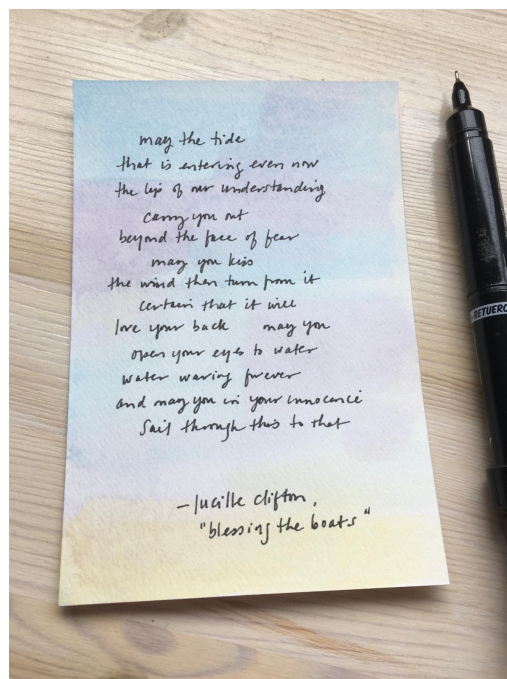 may the tide
that is entering even now
the lip of our understanding
carry you out
beyond the face of fear
may you kiss
the wind then turn from it
certain that it will
love your back may you
open your eyes to water
water waving forever
and may you in your innocence
sail through this to that
– lucille clifton,
"blessing the boats"
RETUERC